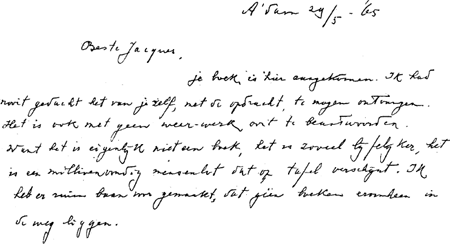 A'dam 29/5 - '65
Beste Jacques,
je boek is hier aangekomen. Ik had
nooit gedacht het van jezelf, met de opdracht, te mogen ontvangen.
Het is ook met geen weer-werk ooit te beantwoorden.
Want het is eigenlijk niet een boek, het is zoveel, het
is een millioenvoudig mensenlot dat op tafel verschijnt. Ik
heb er ruim baan voor gemaakt, dat geen boeken eromheen in
de weg liggen.